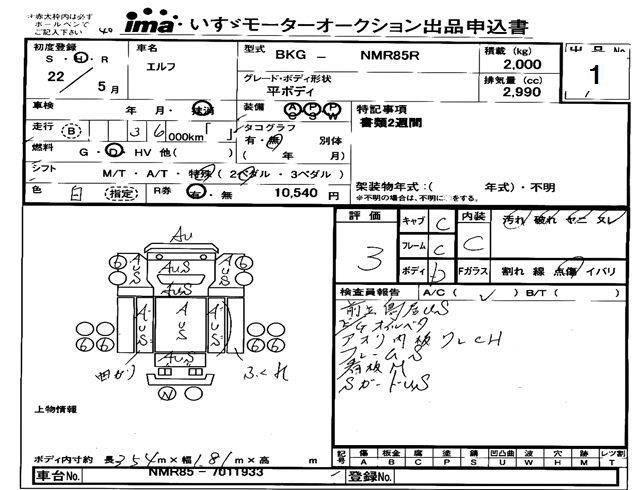 ※赤太枠内は必ず
ボールペンで
ご記入下さい
ima いすゞモーターオークション出品申込書
初度登録
S・H・R
22／5月
車名
エルフ
型式
BKG － NMR85R
積載 (kg)
2,000
排気量 (cc)
2,990
出品No
1
グレード・ボディ形状
平ボディ
車検 年 月・抹消
装備 A/C P/S P/W
特記事項
書類2週間
走行 B 3 6 000km「 」
タコグラフ
有・無 別体
( 年 月)
燃料 G・D・HV 他( )
シフト M/T・A/T・特殊 (2ペダル・3ペダル)
色 白 (指定)
R券 有・無 10,540 円
架装物年式:( 年式)・不明
※不明の場合は、不明に○をする。
評価
3
キャブ C
フレーム C
ボディ b
内装
C
Fガラス
汚れ 破れ ヤニ スレ
割れ 線 点傷 イバリ
検査員報告 A/C ( ✓ ) B/T ( )
E/Gオイルベタ
アオリ内板ワレCH
フレームS
看板M
SガードUS
AU
AUS
AUS
AUS
AUS
AUS
AUS
AUS
AUS
6 6
6 6
6 6
N
曲がり
ふくれ
上物情報
ボディ内寸約 長 3.54 m×幅 1.81 m×高 m
記号
傷 A
板金 B
腐 C
塗 P
錆 S
凹凸曲 U
波 W
穴 H
跡 M
レツ割 T
車台No. NMR85－7011933
登録No.